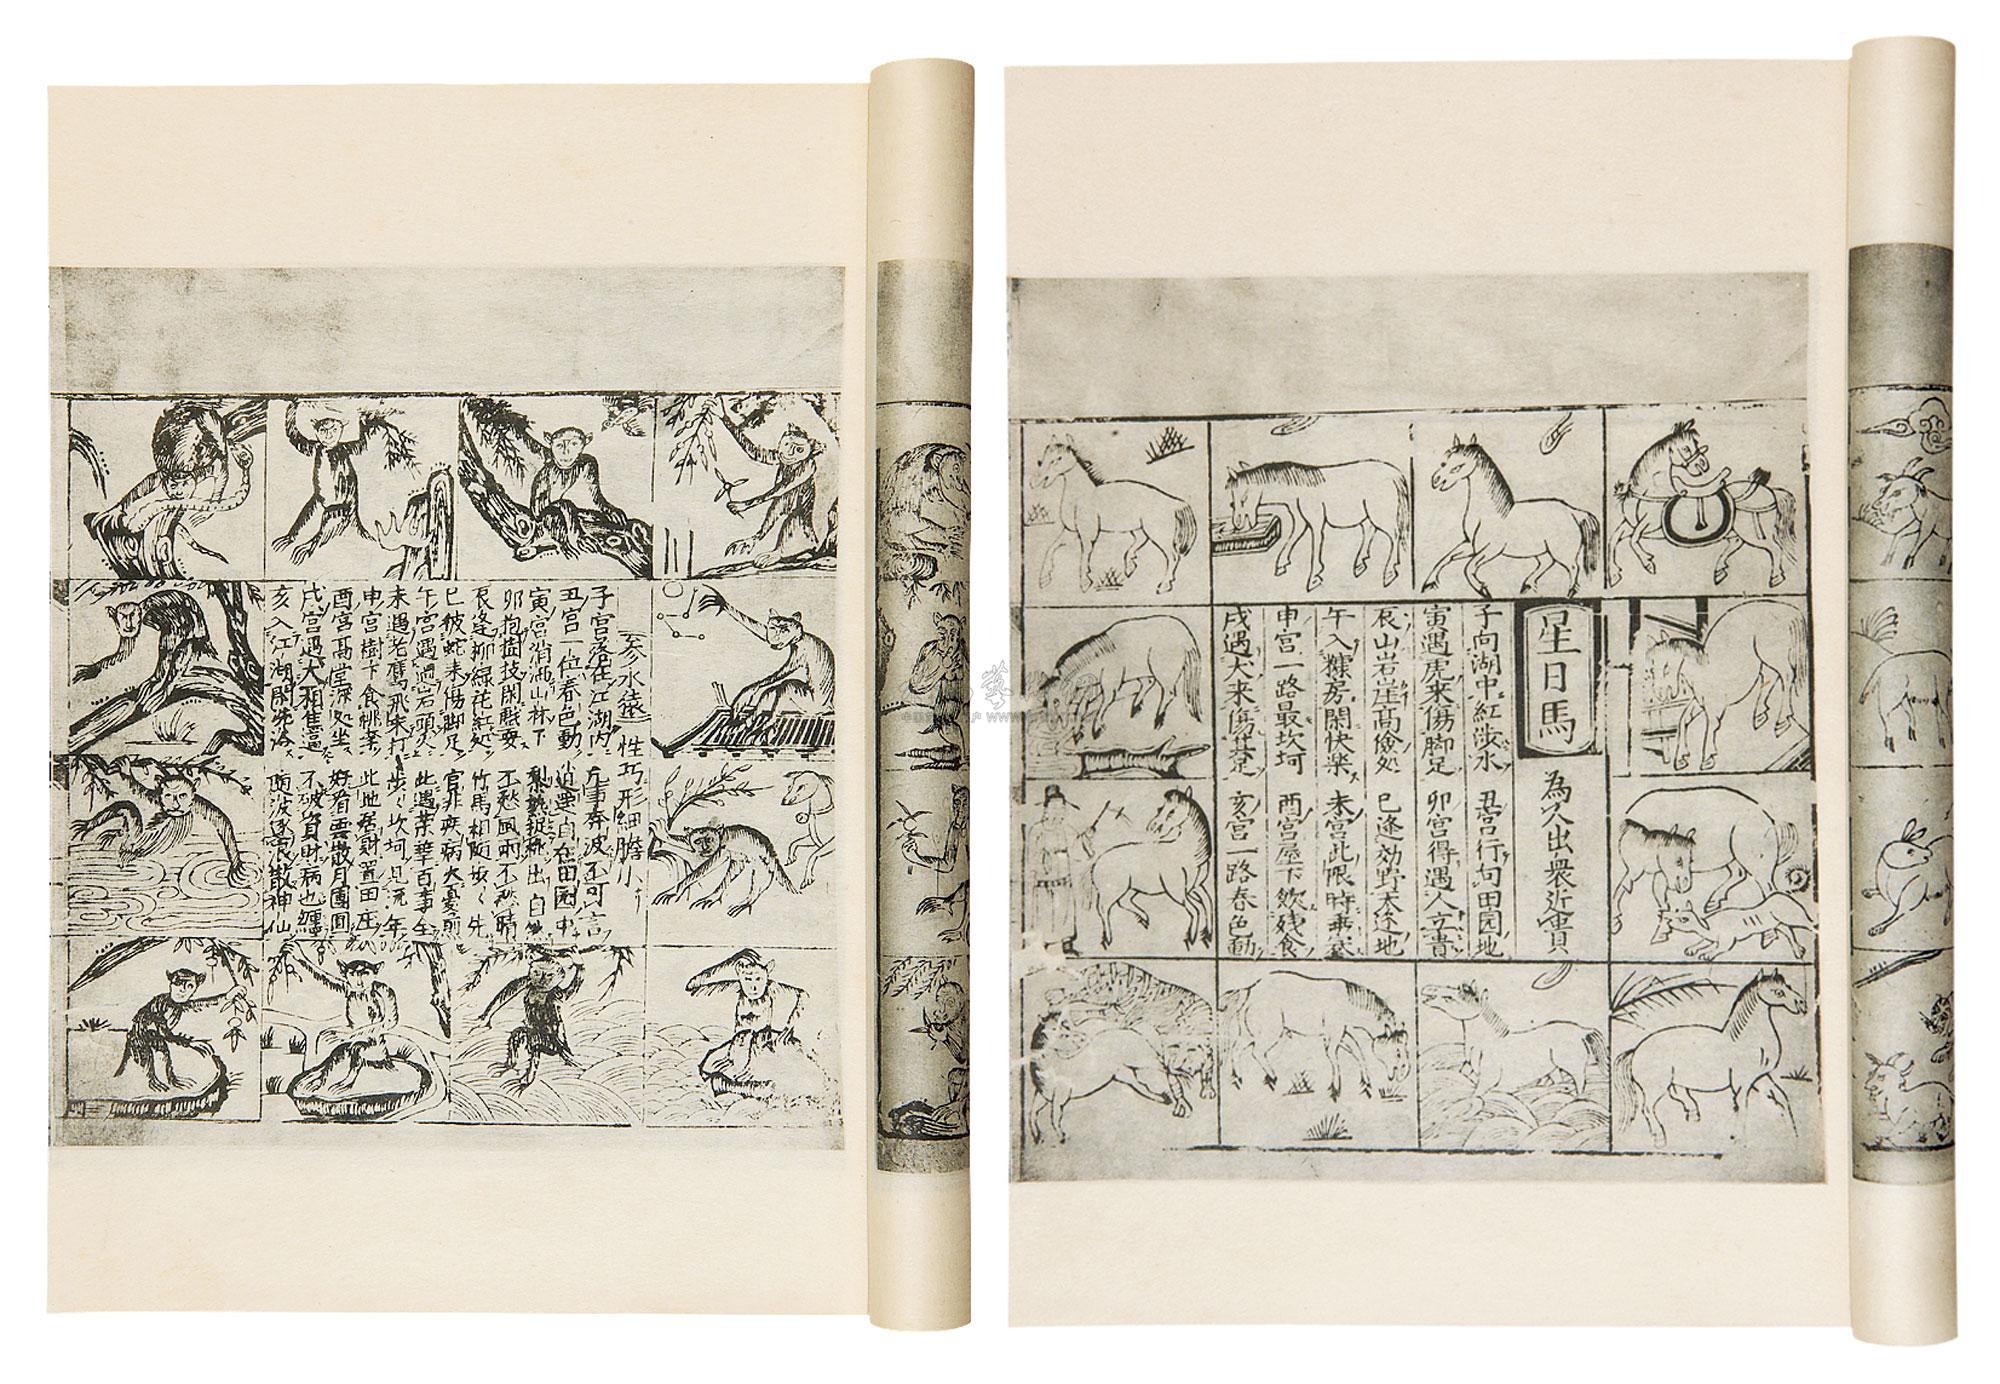 参水遠 性巧形細膽小
子宮落在江湖内 凡事奔波不可言
丑宮一位春色動 逍遥自在田园中
寅宮消洒山林下 出自
卯抱樹枝閑戲耍 不愁風雨不愁晴
辰逢柳緑花紅処 竹馬相随 先
巳被蛇来傷脚足 官非疾病大憂煎
午宮遇過岩頭 此遇荣華百事全
未遇老鷹飛来打 步〻坎坷且流年
申宮樹下食桃菓 此地居財置田庄
酉宮髙堂深処坐 好看雲散月團圓
戌宮遇犬相 逼 不破資財病也纏
亥入江湖閑洗浴 随波逐浪散神仙
星日馬 為人出衆近貴
子向湖中紅涉水 丑宮行句田园地
寅遇虎来傷脚足 卯宮得遇人立貴
辰山岩崖髙儉処 巳逢効野天途地
午入糠房閑快楽 未宮此限時乖
申宮一路最坎坷 酉宮屋下飲残食
戌遇犬来傷其足 亥宮一路春色動